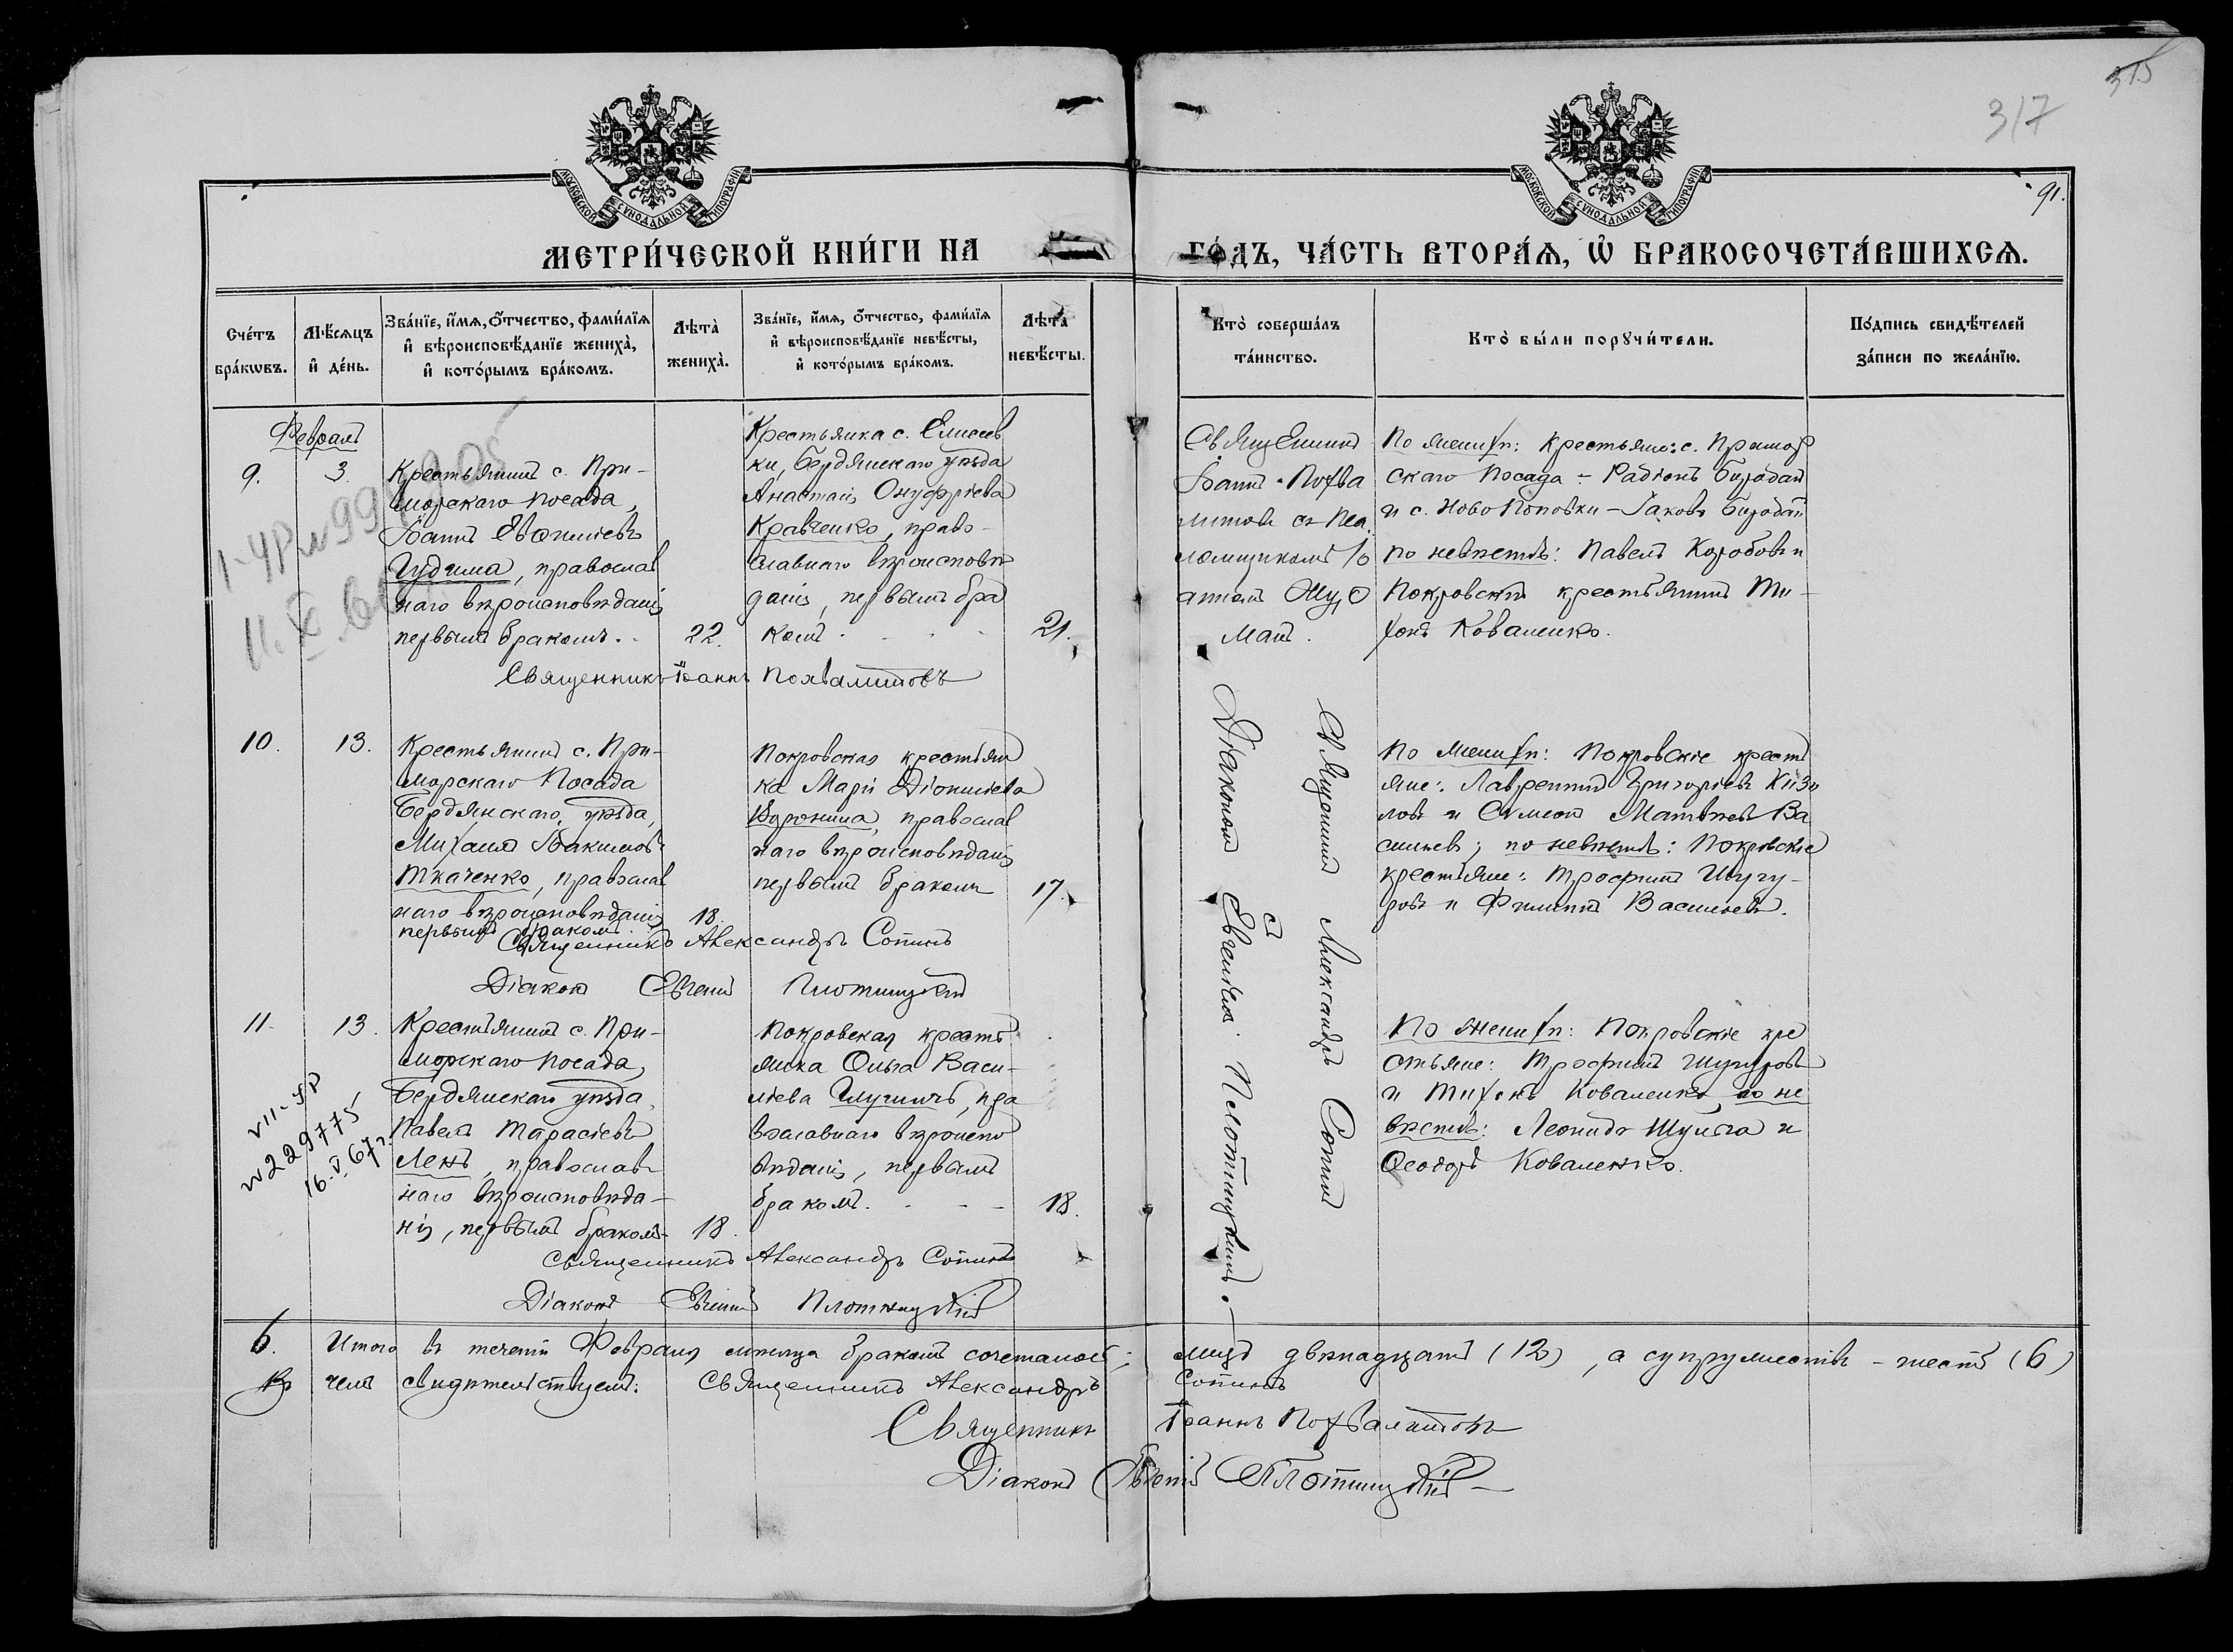 315
317
91.
МОСКОВСКОЙ СѴНОДАЛЬНОЙ ТИПОГРАФІИ
МОСКОВСКОЙ СѴНОДАЛЬНОЙ ТИПОГРАФІИ
МЕТРИ́ЧЕСКОЙ КНИ́ГИ НА ГО́ДЪ, ЧА́СТЬ ВТОРА́Ѧ, Ѡ҆ БРАКОСОЧЕТА́ВШИХСѦ.
Сче́тъ бра́кѡвъ.
Мѣ́сѧцъ и҆ де́нь.
Зва́нїе, и҆́мѧ, ѻ҆́тчество, фами́лїѧ и҆ вѣроисповѣ́данїе жениха̀, и҆ кото́рымъ бра́комъ.
Лѣта̀ жениха̀.
Зва́нїе, и҆́мѧ, ѻ҆́тчество, фами́лїѧ и҆ вѣроисповѣ́данїе невѣ́сты, и҆ кото́рымъ бра́комъ.
Лѣта̀ невѣ́сты.
Кто̀ соверша́лъ та́инство.
Кто̀ бы́ли порꙋчи́тели.
По́дпись свидѣ́телей за́писи по жела́нїю.
Февраль
9.
3.
Крестьянинъ с. При-
морскаго Посада,
Іоаннъ Евѳиміевъ
Гудима, православ
наго вѣроисповѣданія
первымъ бракомъ.
22.
Крестьянка с. Елисеев
ки, Бердянскаго уѣзда
Анастасія Онуфріева
Кравченко, право-
славнаго вѣроисповѣ
данія, первымъ бра
комъ
21.
Священникъ
Іоаннъ Похва
литовъ съ Пса
ломщикомъ
По женихѣ: Крестьяне: с. Примор
скаго Посада - Радіонъ Бородай
и с. Ново Поповки - Іаковъ Бородай
по невѣстѣ: Павелъ Коробовъ и
Покровскій крестьянинъ Ти-
хонъ Коваленко.
Священникъ Іоаннъ Похвалитовъ
10.
13.
Крестьянинъ с. При-
морскаго Посада
Бердянскаго, уѣзда,
Михаилъ Іоакимовъ
Ткаченко, православ
наго вѣроисповѣданія
первымъ бракомъ.
18.
Покровская крестьян
ка Марія Діонисіева
Воронина, православ
наго вѣроисповѣданія
первымъ бракомъ
17.
По женихѣ: Покровскіе кресть
яне: Лаврентій Григоріевъ Кизи
ловъ и Симеонъ Матвѣевъ Ва
сильевъ; по невѣстѣ: Покровскіе
крестьяне: Трофимъ Шугу-
ровъ и Филиппъ Васильевъ.
Священникъ Александръ Сопинъ
Діаконъ Евгеній Плотницкій
Священникъ Александръ Сопинъ
съ
Діакономъ Евгеніемъ Плотницкимъ.
11.
13.
Крестьянинъ с. При-
морскаго Посада,
Бердянскаго уѣзда,
Павелъ Тарасіевъ
Лень, православ
наго вѣроисповѣда-
нія, первымъ бракомъ
18.
Покровская кресть
янка Ольга Васи-
ліева, пра
вославнаго вѣроиспо
вѣданія, первымъ
бракомъ.
18.
По женихѣ: Покровскіе кре
стьяне: Трофимъ Шугуровъ
и Тихонъ Коваленко, по не
вѣстѣ: Леонидъ Шульга и
Ѳеодоръ Коваленко.
Священникъ Александръ Сопинъ
Діаконъ Евгеній Плотницкій
№ 229775
16.V.67 г.
6. Итого въ теченіи Февраля мѣсяца бракомъ сочеталось: лицъ двѣнадцать (12), а супружествъ - шесть (6)
Въ чемъ свидѣтельствуемъ: Священникъ Александръ Сопинъ
Священникъ Іоаннъ Похвалитовъ
Діаконъ Евгеній Плотницкій